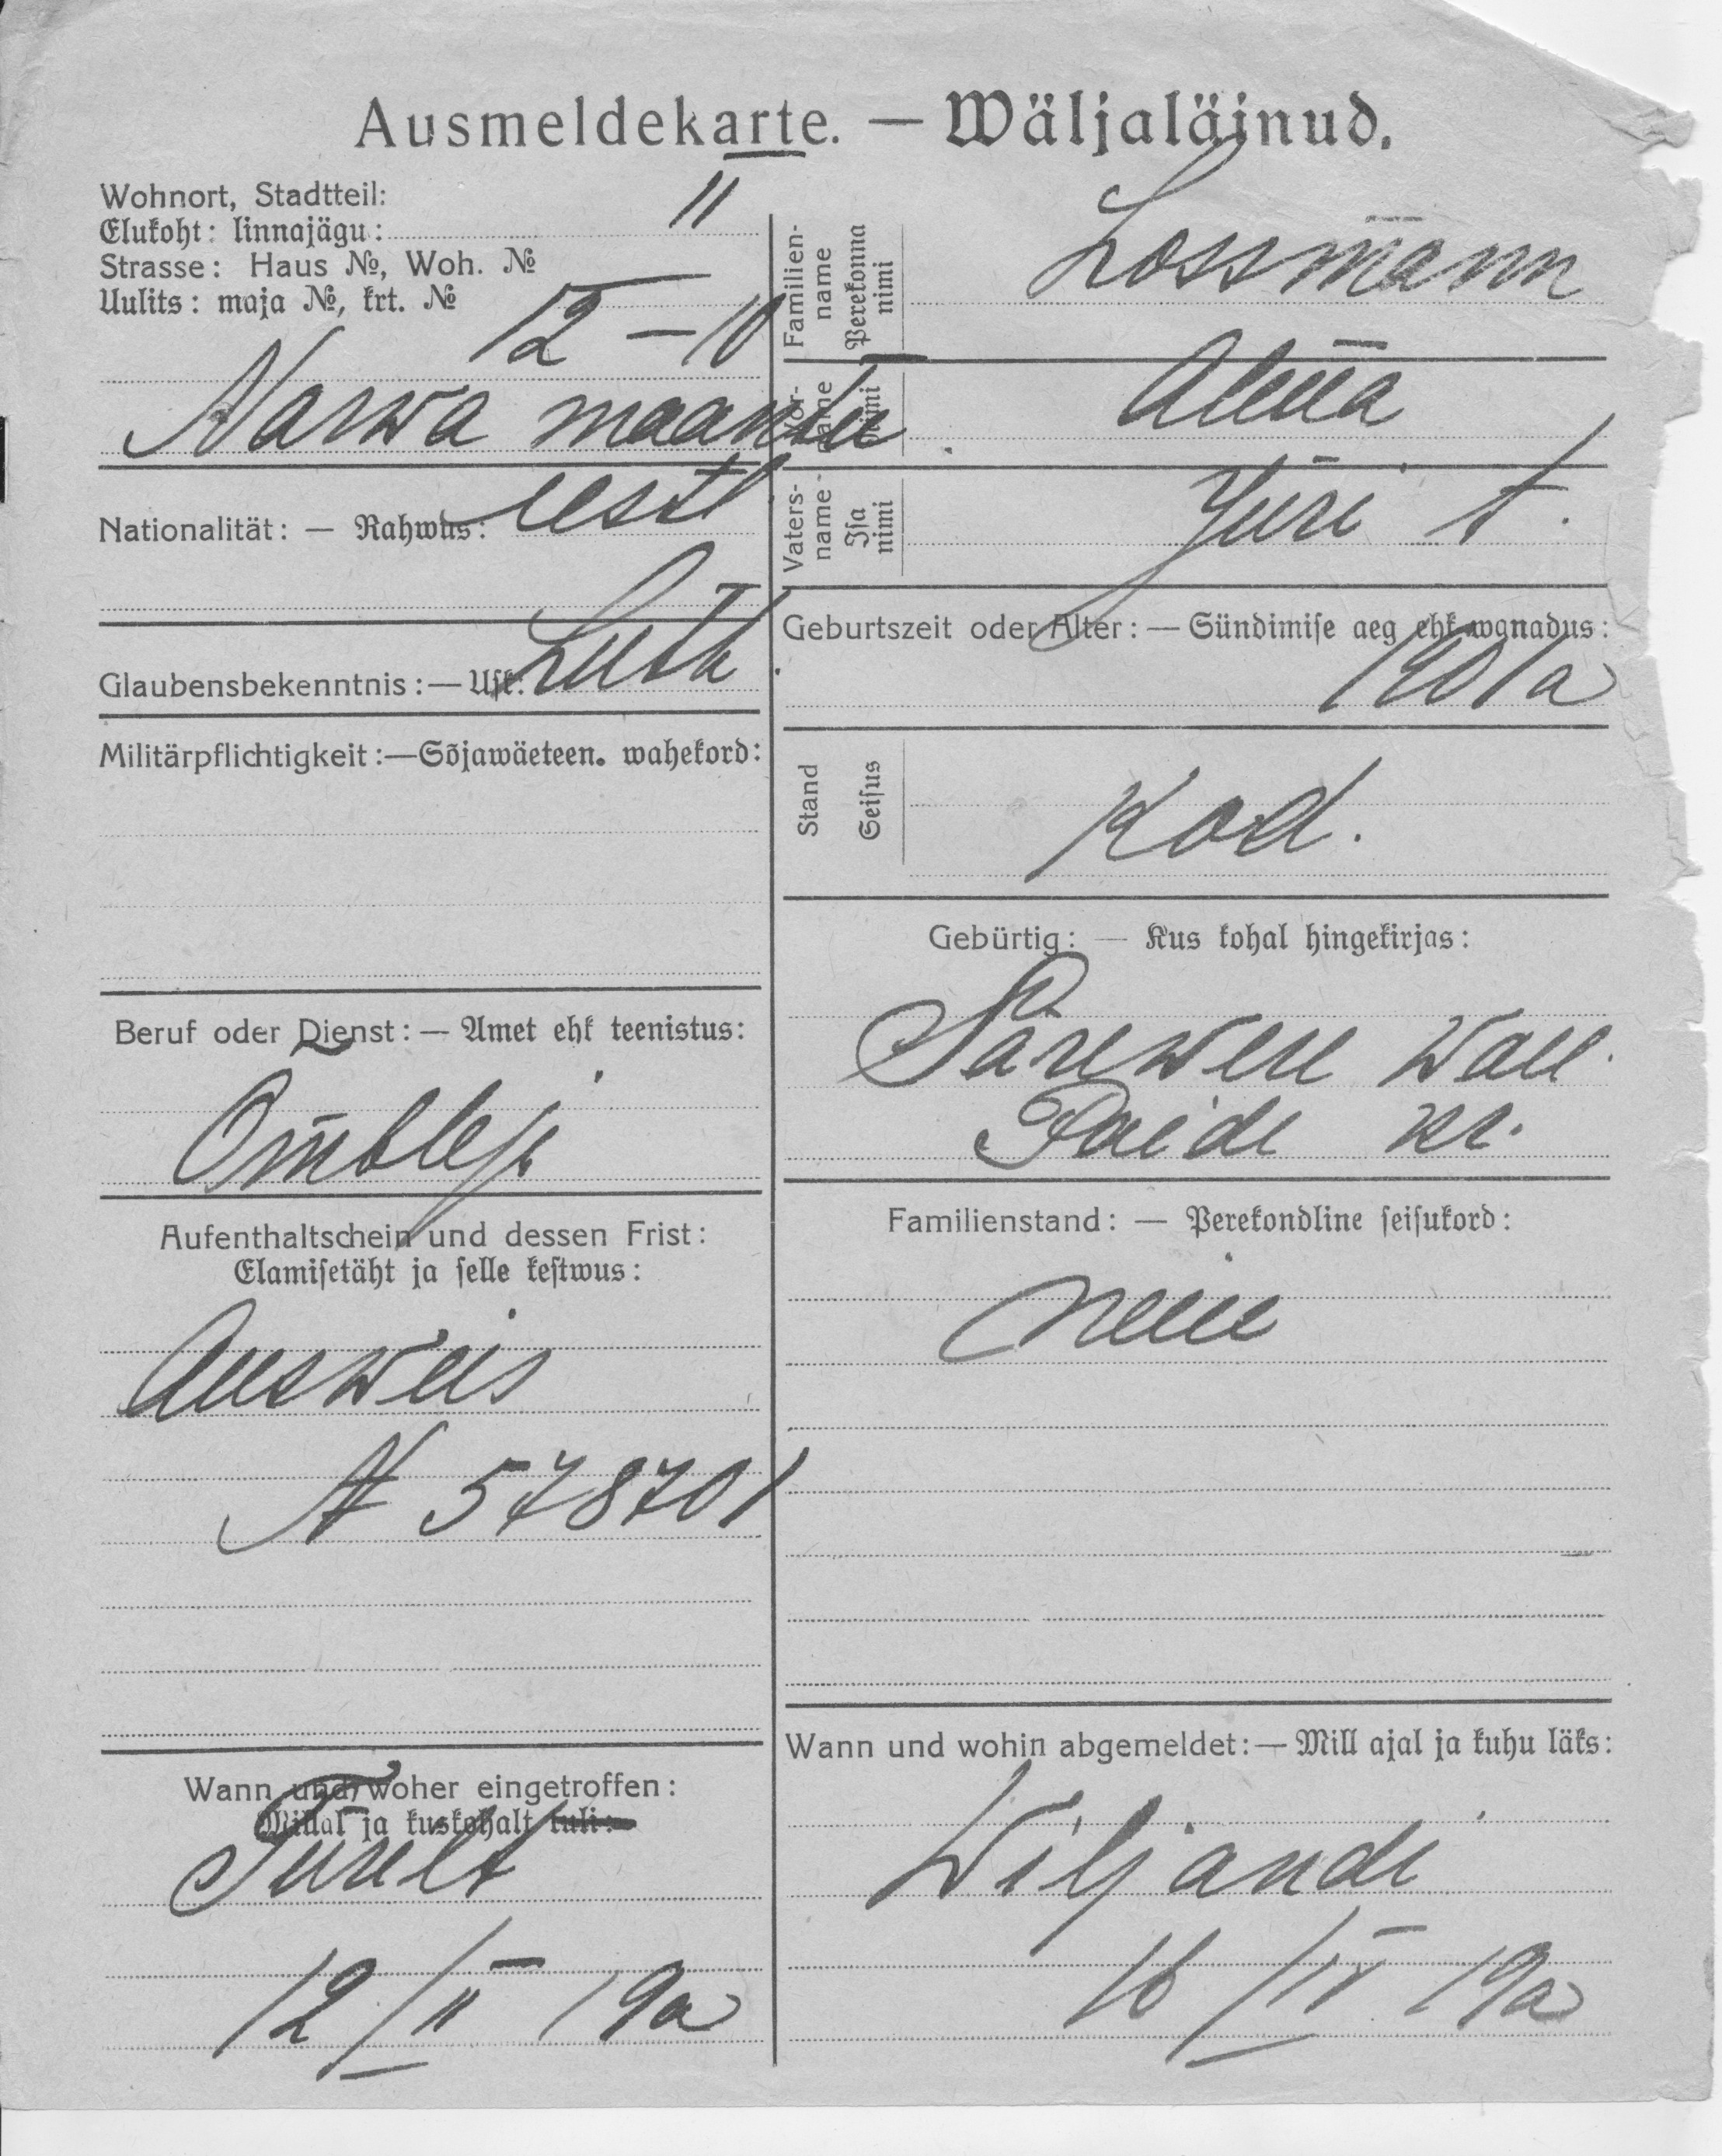 Ausmeldekarte. — Wäljaläinud.
Wohnort, Stadtteil:
Elukoht: linnajägu: II
Strasse: Haus №, Woh. №
Uulits: maja №, krt. №
12 – 10
Narwa maantee
Nationalität: — Rahwus: eesti
Glaubensbekenntnis: — Usk: Luth.
Militärpflichtigkeit:—Sõjawäeteen. wahekord:
Beruf oder Dienst: — Amet ehk teenistus:
Õmbleja
Aufenthaltschein und dessen Frist:
Elamisetäht ja selle kestwus:
Ausweis
N 578701
Wann und woher eingetroffen:
Millal ja kuskohalt tuli:
Türilt
12/II 19a
Familien-
name
Perekonna
nimi
Lossmann
Vor-
name
nimi
Vaters-
name
Isa
nimi
Jüri t.
Geburtszeit oder Alter: — Sündimise aeg ehk wanadus:
1901a
Stand
Seisus
Kod.
Gebürtig: — Kus kohal hingekirjas:
Särewere wall.
Paide kr.
Familienstand: — Perekondline seisukord:
neiu
Wann und wohin abgemeldet:— Mill ajal ja kuhu läks:
Wiljandi
16/IV 19a